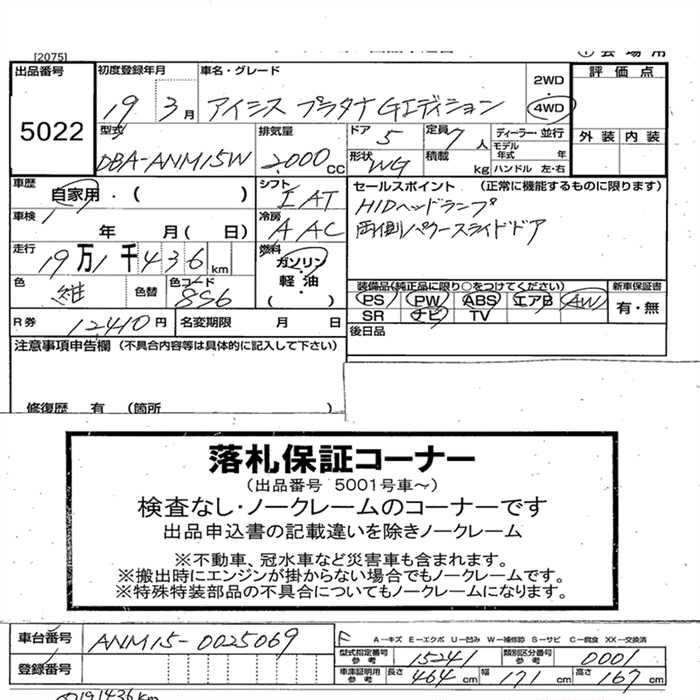 [2075]
出品番号 初度登録年月 車名・グレード 2WD 評価点
5022 19 3月 アイシス プラタナGエディション 4WD
型式 排気量 ドア 5 定員 7人 ディーラー・並行 外装 内装
DBA-ANM15W 2,000cc 形状 WG 積載 kg モデル年式 年 ハンドル 左・右
車歴 自家用・( ) シフト IAT セールスポイント (正常に機能するものに限ります)
車検 年 月( 日) 冷房 AAC HIDヘッドランプ
走行 19万1千436km 燃料 ガソリン・軽油( ) 両側パワースライドドア
色 紺 色替 色コード 8S6 装備品(純正品に限り○をつけてください) 新車保証書
PS PW ABS エアB AW 有・無
R券 12,410円 名変期限 月 日 SR ナビ TV
注意事項申告欄 (不具合内容等は具体的に記入して下さい) 後日品
修復歴 有 (箇所 )
落札保証コーナー
(出品番号 5001号車～)
検査なし・ノークレームのコーナーです
出品申込書の記載違いを除きノークレーム
※不動車、冠水車など災害車も含まれます。
※搬出時にエンジンが掛からない場合でもノークレームです。
※特殊特装部品の不具合についてもノークレームになります。
車台番号 ANM15-0025069 F A－キズ E－エクボ U－凹み W－補修跡 S－サビ C－腐食 XX－交換済
型式指定番号 参考 15241 類別区分番号 参考 0001
登録番号 車庫証明用 参考 長さ 464cm 幅 171cm 高さ 167cm
191436km